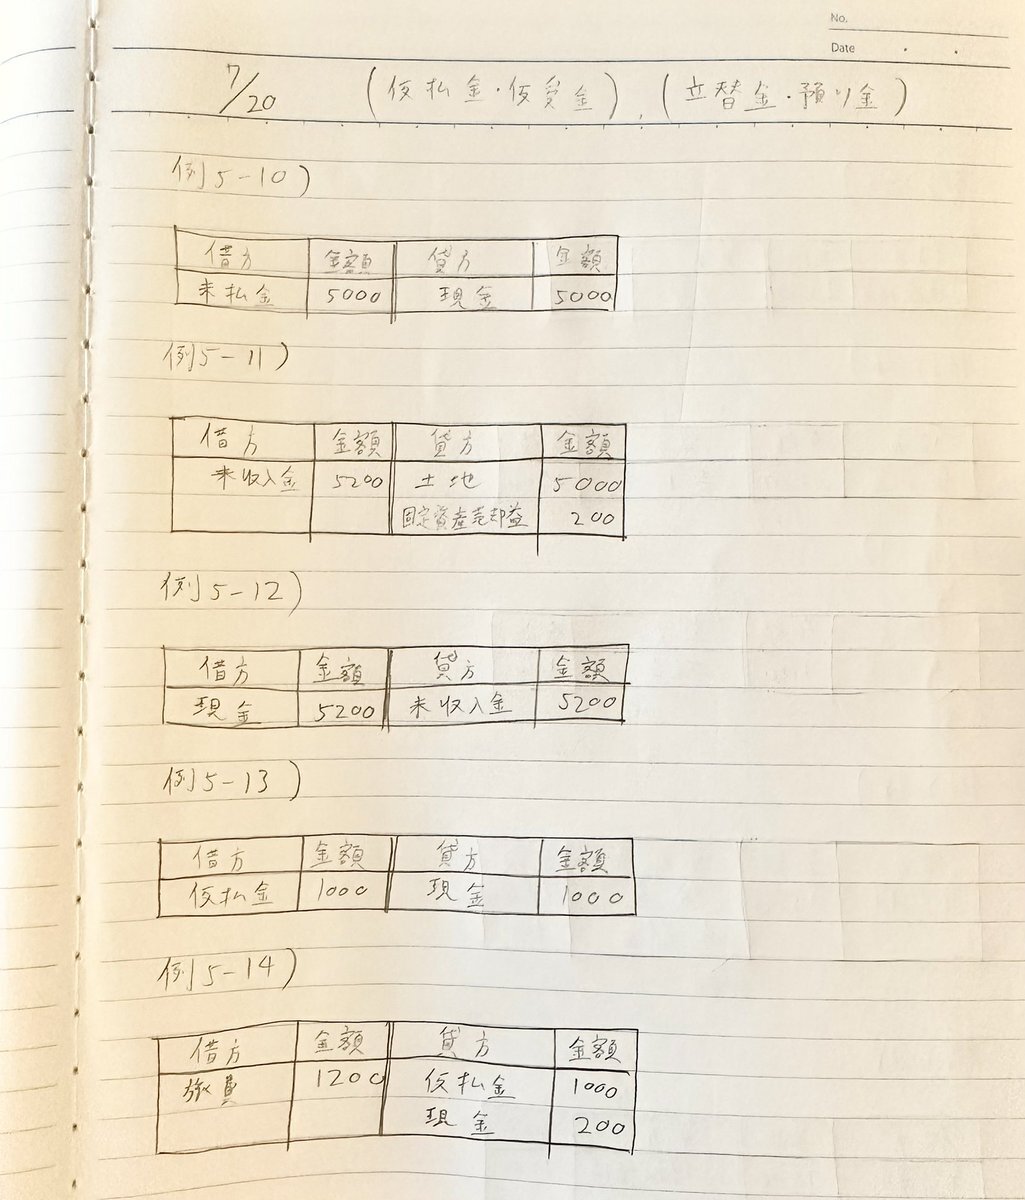 No.
Date
7/20 (仮払金・仮受金),(立替金・預り金)
例5-10)
借方 金額 貸方 金額
未払金 5000 現金 5000
例5-11)
借方 金額 貸方 金額
未収入金 5200 土地 5000
固定資産売却益 200
例5-12)
借方 金額 貸方 金額
現金 5200 未収入金 5200
例5-13)
借方 金額 貸方 金額
仮払金 1000 現金 1000
例5-14)
借方 金額 貸方 金額
旅費 1200 仮払金 1000
現金 200